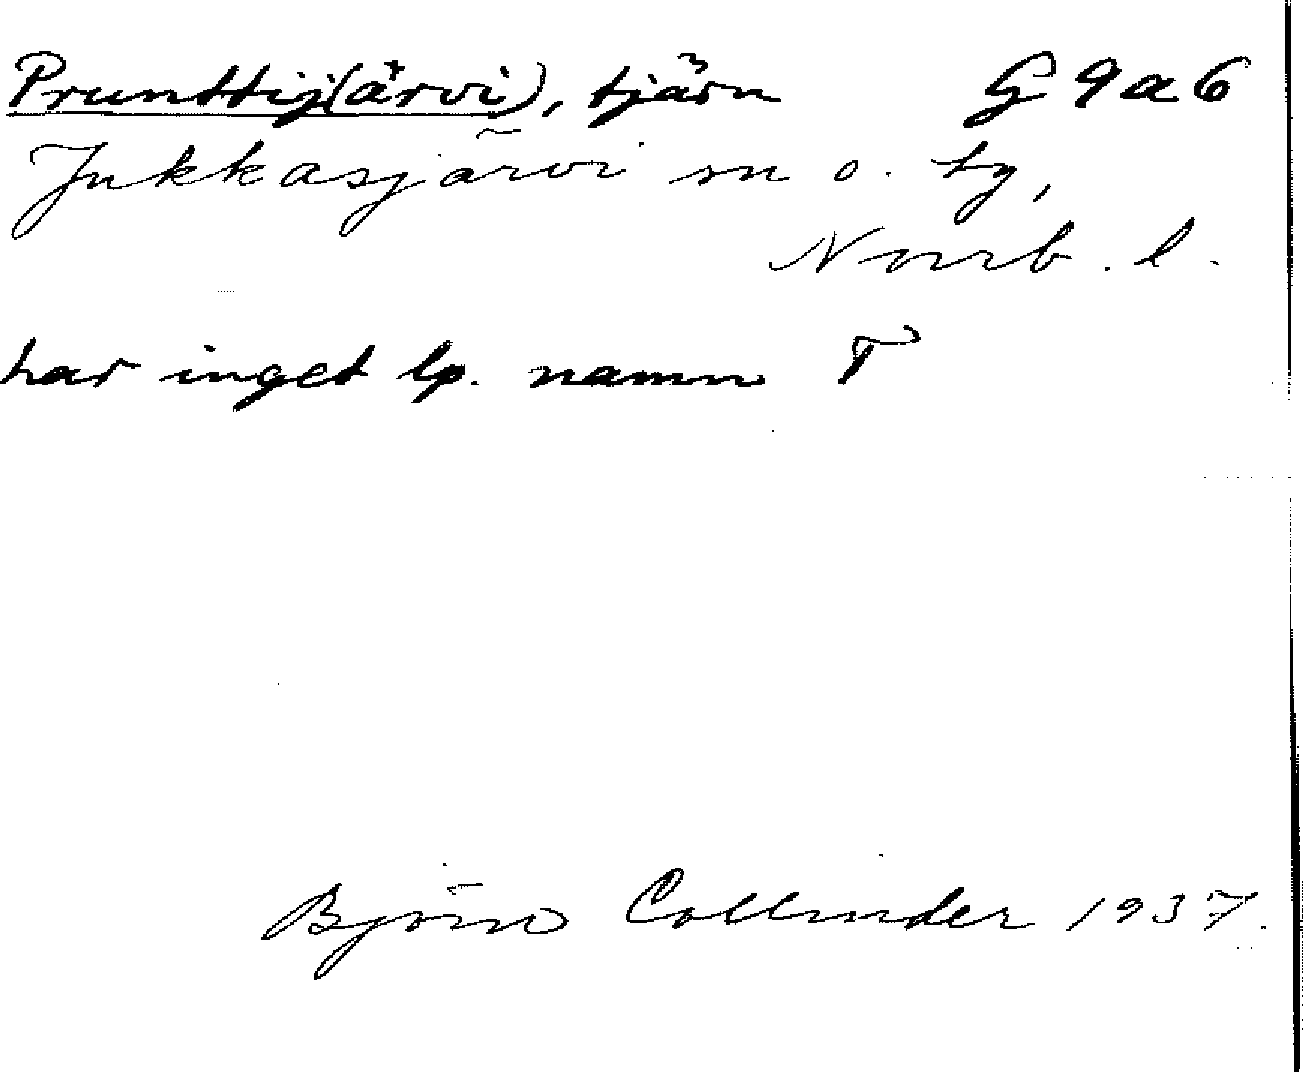 Prunttij(ärvi), tjärn G 9 a 6
Jukkasjärvi sn o. tg,
Norrb. l.
har inget lp. namn T
Björn Collinder 1937.